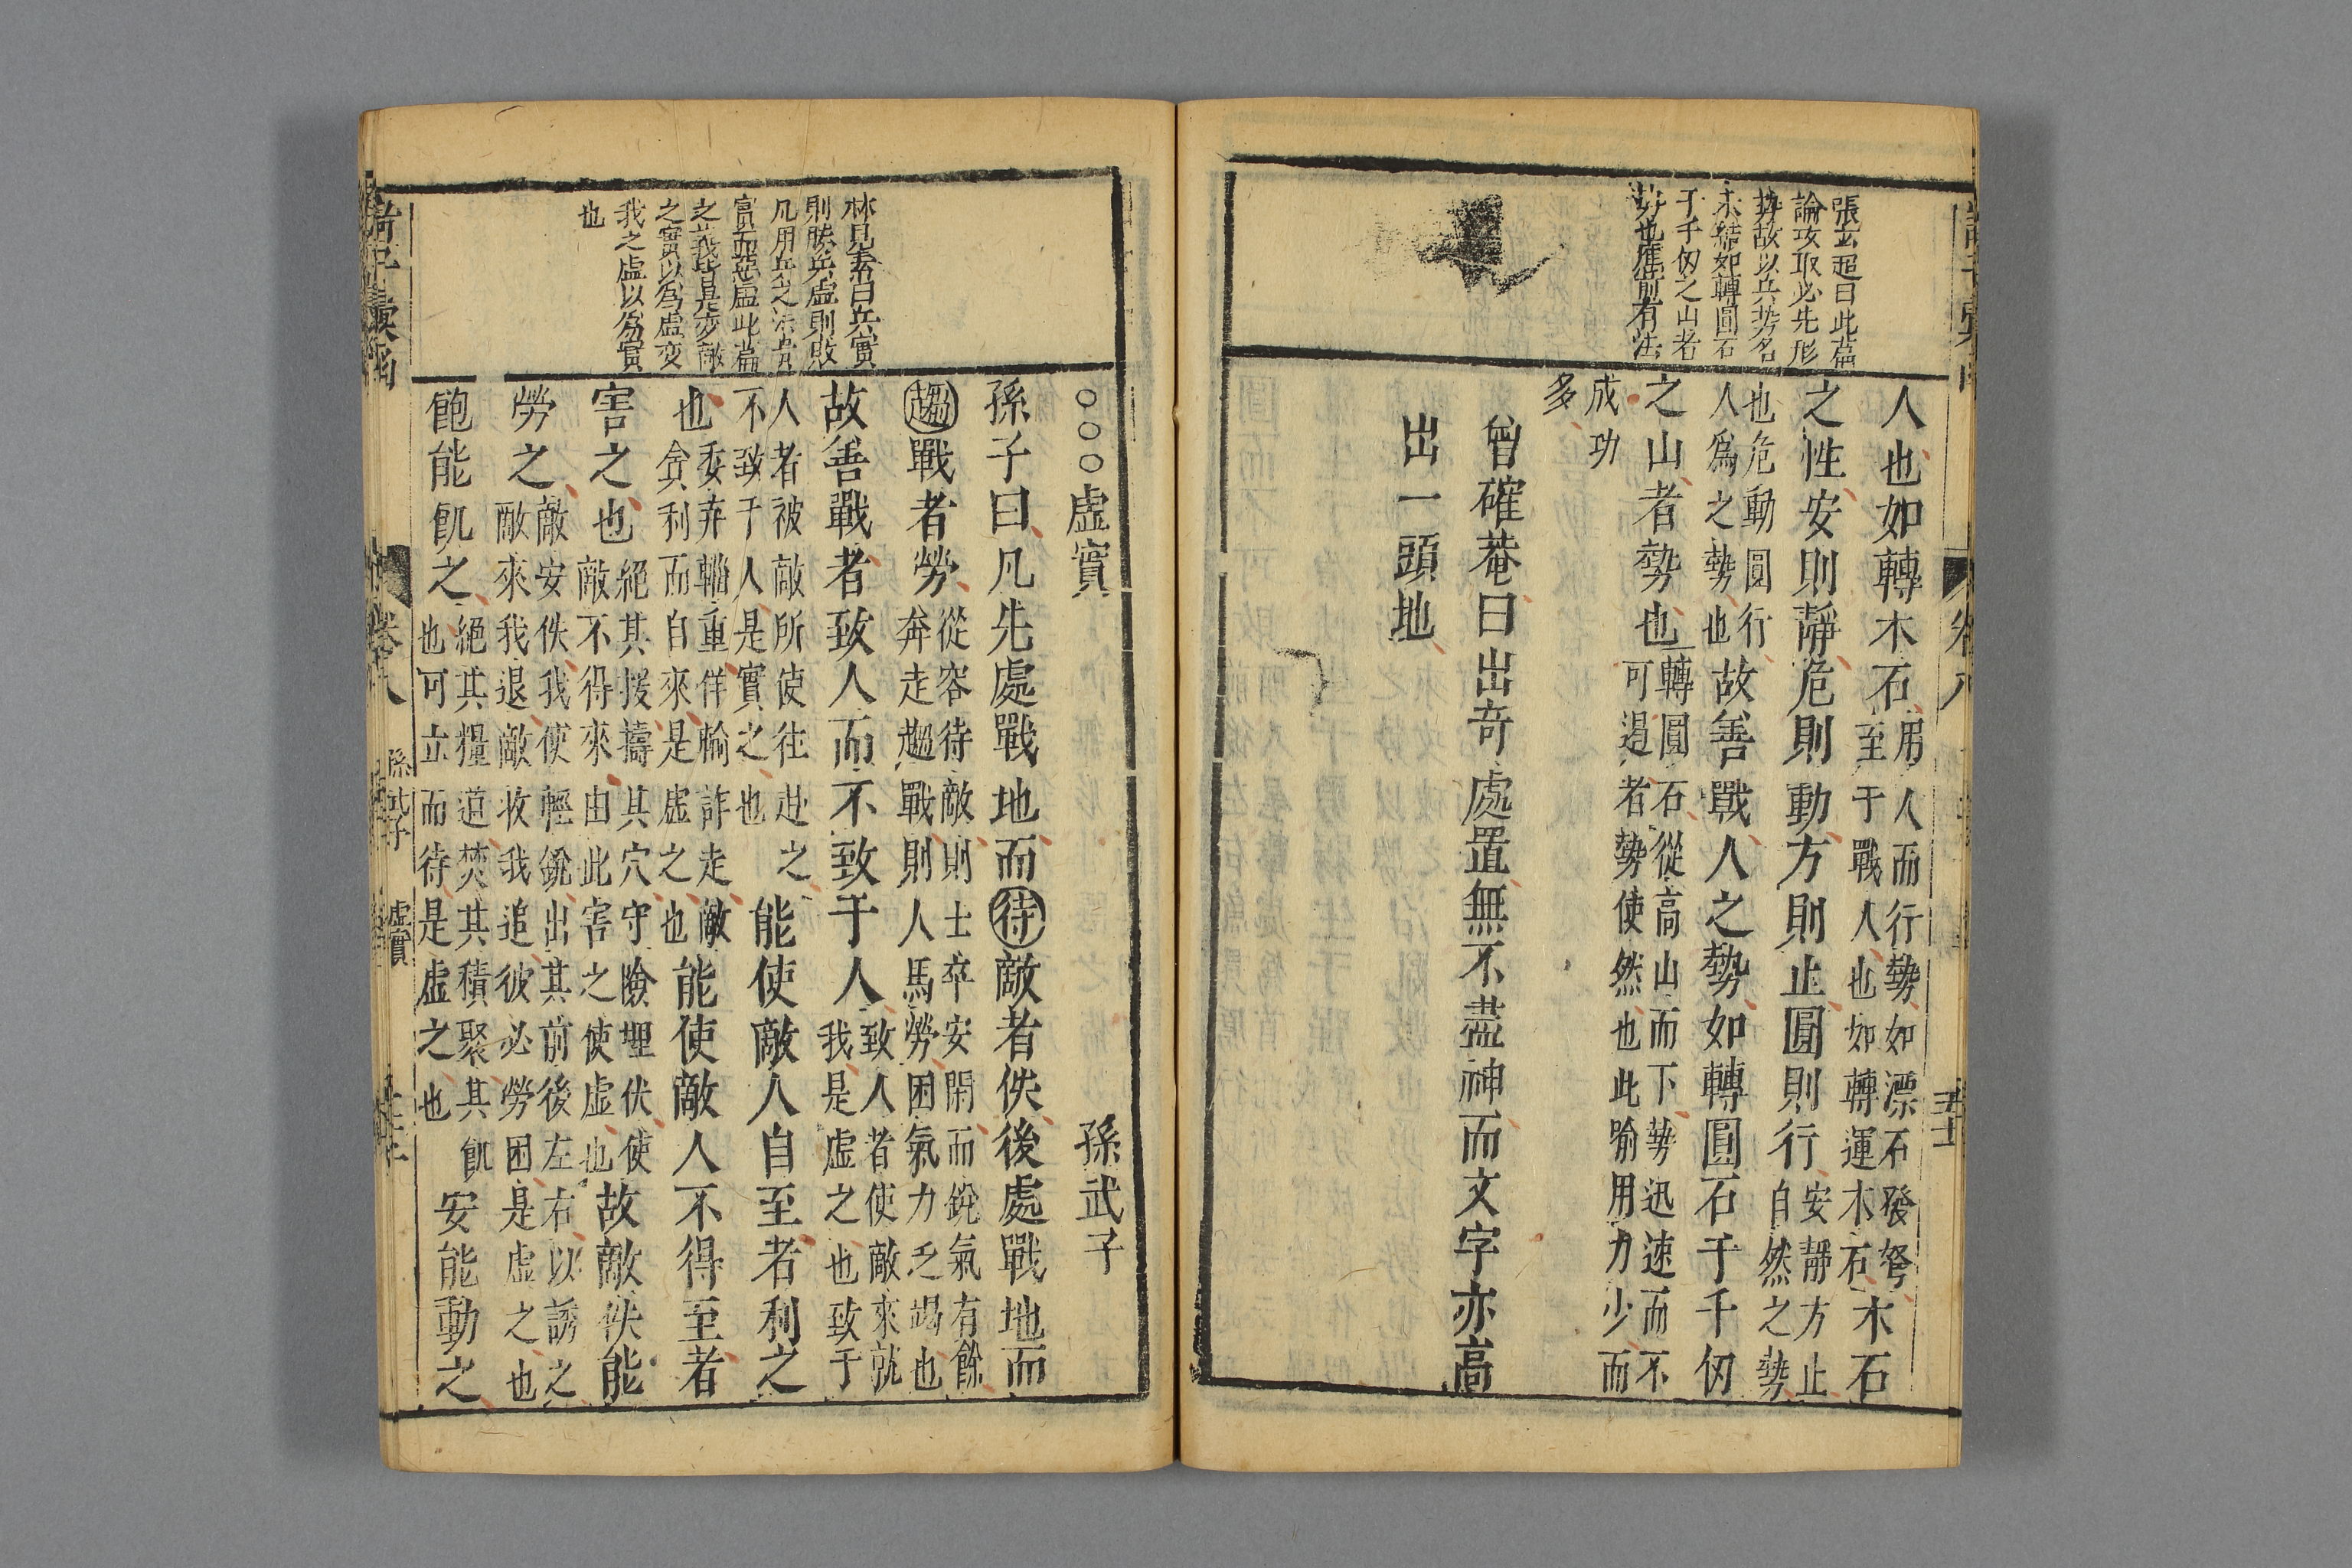 張玄超曰此篇
論攻取必先形
勢故以兵勢名
末結如轉圓石
于千仞之山者
勢也應前有法
人也如轉木石用人而行勢如漂石發弩
至于戰人也如轉運木石木石
之性安則靜危則動方則止圓則行安靜方止
自然之勢
也危動圓行
人爲之勢也故善戰人之勢如轉圓石于千仞
之山者勢也轉圓石從高山而下勢迅速而不
可遏者勢使然也此喻用力少而
成功
多
曾確菴曰出奇處置無不盡神而文字亦高
出一頭地
卷八
林見素曰兵實
則勝兵虛則敗
凡用兵之法貴
實而惡虛此篇
之義皆是变敵
之實以爲虛变
我之虛以爲實
也
○○○虛實 孫武子
孫子曰凡先處戰地而待敵者佚後處戰地而
趨戰者勞從容待敵則士卒安閑而銳氣有餘
奔走趨戰則人馬勞困氣力乏竭也
故善戰者致人而不致于人致人者使敵來就
我是虛之也致于
人者被敵所使往赴之
不致于人是實之也能使敵人自至者利之
也委弃輜重佯輸詐走敵
貪利而自來是虛之也能使敵人不得至者
害之也絕其援擣其穴守險埋伏使
敵不得來由此害之使虛也故敵佚能
勞之敵安佚我使輕銳出其前後左右以誘之
敵來我退敵收我追彼必勞困是虛之也
飽能飢之絕其糧道焚其積聚其飢
也可立而待是虛之也安能動之
諸子彙函
卷八
孫武子
虛實